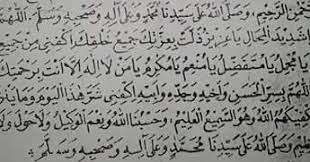 حمن الرحيم، وصلى الله على سيدنا محمد وعلى آله وصحبه وسلم، اللهم
شديد المحال يا عزيز ذلت بعزتك جميع خلقك اكفني
يا مجمل يا متفضل يا منعم يا مكرم يا من لا إله إلا أنت برحمتك
اللهم بسر الحسن وأخيه وجده وأبيه اكفني شر هذا اليوم وما ينز
فيكفيكهم الله وهو السميع العليم، وحسبنا الله ونعم الوكيل ولا حول ولا
وصلى الله على سيدنا محمد وعلى آله وصحبه وسلم